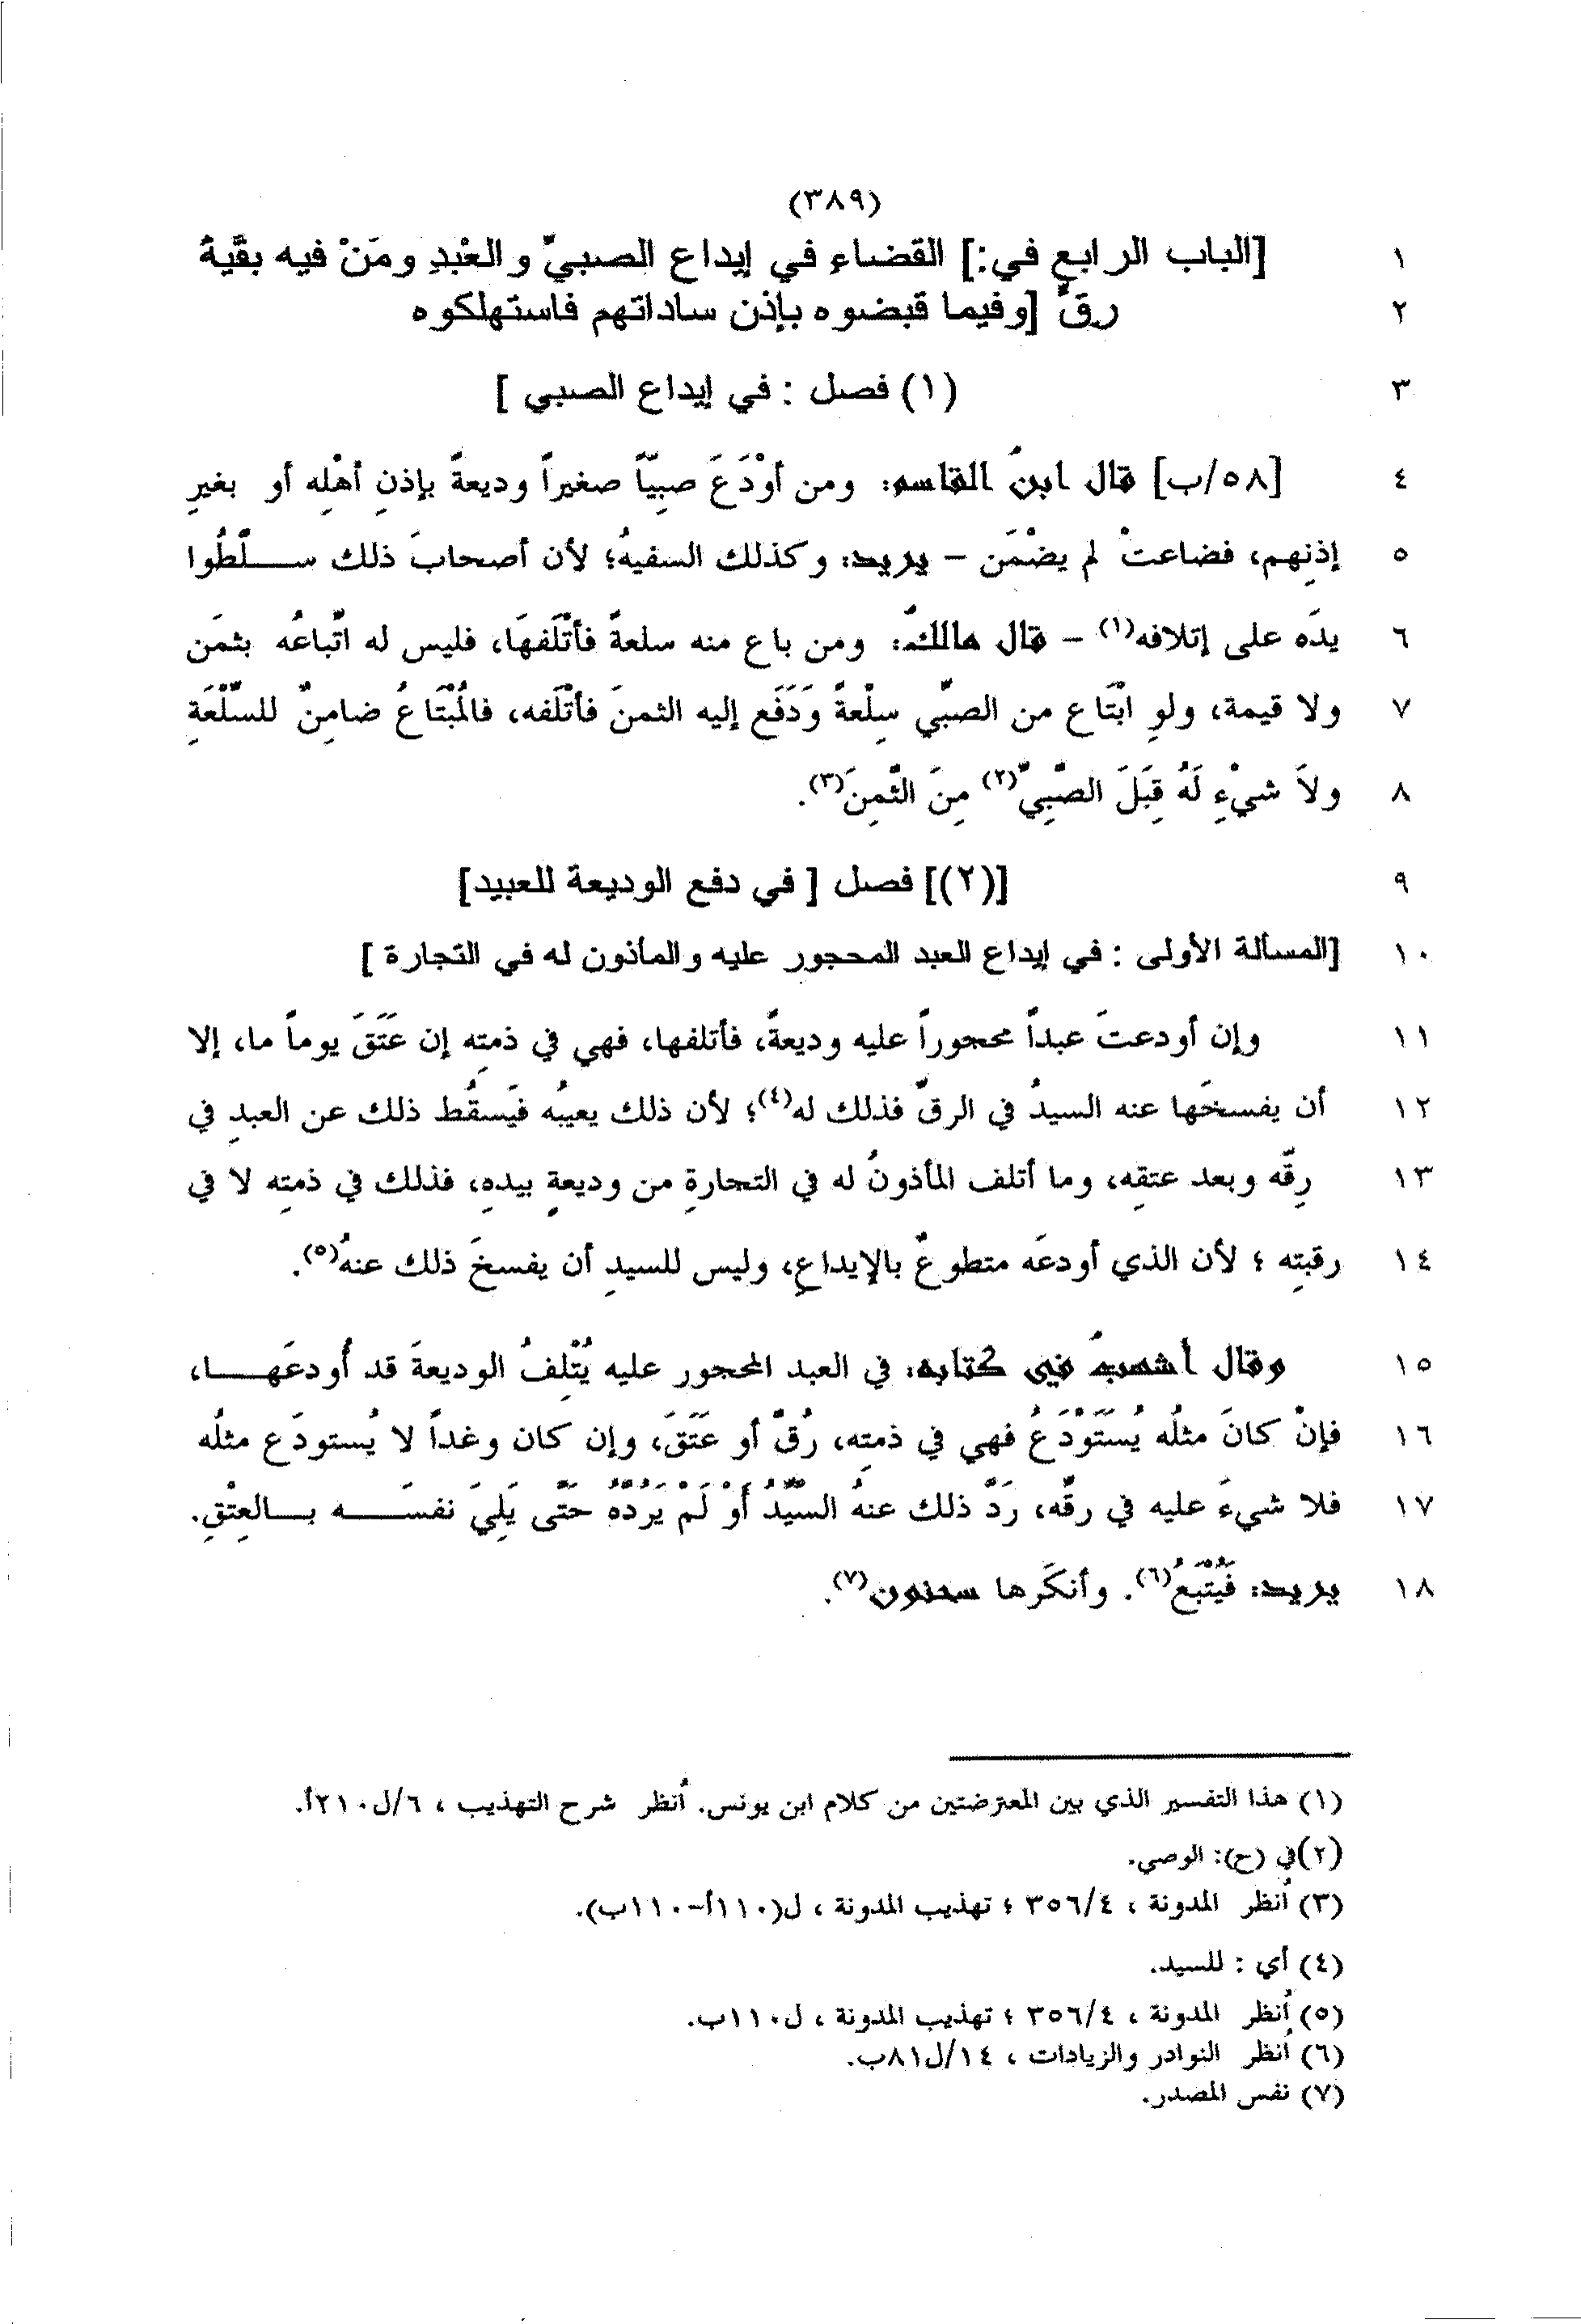 (٣٨٩)
١ [الباب الرابع في:] القضاء في إيداع الصبيّ والعبْدِ ومَنْ فيه بقيّةُ
٢ رقّ [وفيما قبضوه بإذن ساداتهم فاستهلكوه
٣ (١) فصل : في إيداع الصبي ]
٤ [٥٨/ب] قال ابنُ القاسم: ومن أوْدَعَ صبِيّاً صغيراً وديعةً بإذنِ أهْلِه أو بغيرِ
٥ إذنِهم، فضاعتْ لم يضْمَن – يريد: وكذلك السفيهُ؛ لأن أصحابَ ذلك سلّطُوا
٦ يدَه على إتلافه(١) – قال مالكٌ: ومن باع منه سلعةً فأتْلَفهَا، فليس له اتّباعُه بثمَن
٧ ولا قيمة، ولوِ ابْتَاع من الصبّي سِلْعةً وَدَفَع إليه الثمنَ فأتْلَفه، فالمُبْتَاعُ ضامِنٌ للسِّلْعَةِ
٨ ولاَ شيْءِ لَهُ قِبَلَ الصّبِيّ(٢) مِنَ الثّمِنَ(٣).
٩ [(٢)] فصل [ في دفع الوديعة للعبيد]
١٠ [المسألة الأولى : في إيداع العبد المحجور عليه والمأذون له في التجارة ]
١١ وإن أودعتَ عبداً محجوراً عليه وديعةً، فأتلفها، فهي في ذمتِه إن عَتَقَ يوماً ما، إلا
١٢ أن يفسخَها عنه السيدُ في الرقّ فذلك له(٤)؛ لأن ذلك يعيبُه فيَسقُط ذلك عن العبدِ في
١٣ رِقّه وبعد عتقِه، وما أتلف المأذونُ له في التجارةِ من وديعةٍ بيدهِ، فذلك في ذمتِه لا في
١٤ رقبتِه ؛ لأن الذي أودعَه متطوعٌ بالإيداعِ، وليس للسيدِ أن يفسخَ ذلك عنهُ(٥).
١٥ وقال أشهبُ في كتابه: في العبد المحجور عليه يُتْلِفُ الوديعةَ قد أُودعَها،
١٦ فإنْ كانَ مثلُه يُسْتَوْدَعُ فهي في ذمتِه، رُقّ أو عَتَقَ، وإن كان وغداً لا يُستودَع مثلُه
١٧ فلا شيءَ عليه في رقّه، رَدَّ ذلك عنهُ السّيّدُ أَوْ لَمْ يَرُدّهُ حَتّى يَلِيَ نفسَه بالعِتْقِ.
١٨ يريد: فَيُتْبَعُ(٦). وأنكَرها سحنون(٧).
(١) هذا التفسير الذي بين المعترضتين من كلام ابن يونس. اُنظر شرح التهذيب ، ٦/ل٢١٠أ.
(٢)في (ح): الوصي.
(٣) اُنظر المدونة ، ٣٥٦/٤ ؛ تهذيب المدونة ، ل(١١٠أ-١١٠ب).
(٤) أي : للسيد.
(٥) اُنظر المدونة ، ٣٥٦/٤ ؛ تهذيب المدونة ، ل١١٠ب.
(٦) اُنظر النوادر والزيادات ، ١٤/ل٨١ب.
(٧) نفس المصدر.